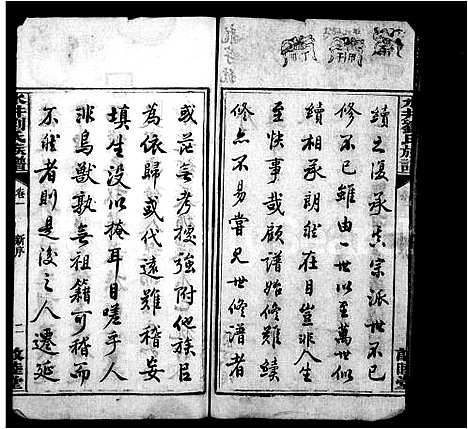 續之復承吾宗派世不已
修不已雖由一世以至萬世似
續相承朗然在目豈非人生
至快事哉顧譜始修難續
修亦不易嘗見世修譜者
敦睦堂
水井劉氏族譜
卷一
新序
二
敦睦堂
或茫無考據強附他族巨
為依歸或代遠難稽妄
填生沒以掩耳目嗟乎人
非鳥獸孰無祖籍可稽而
不然者則是後之人遷延